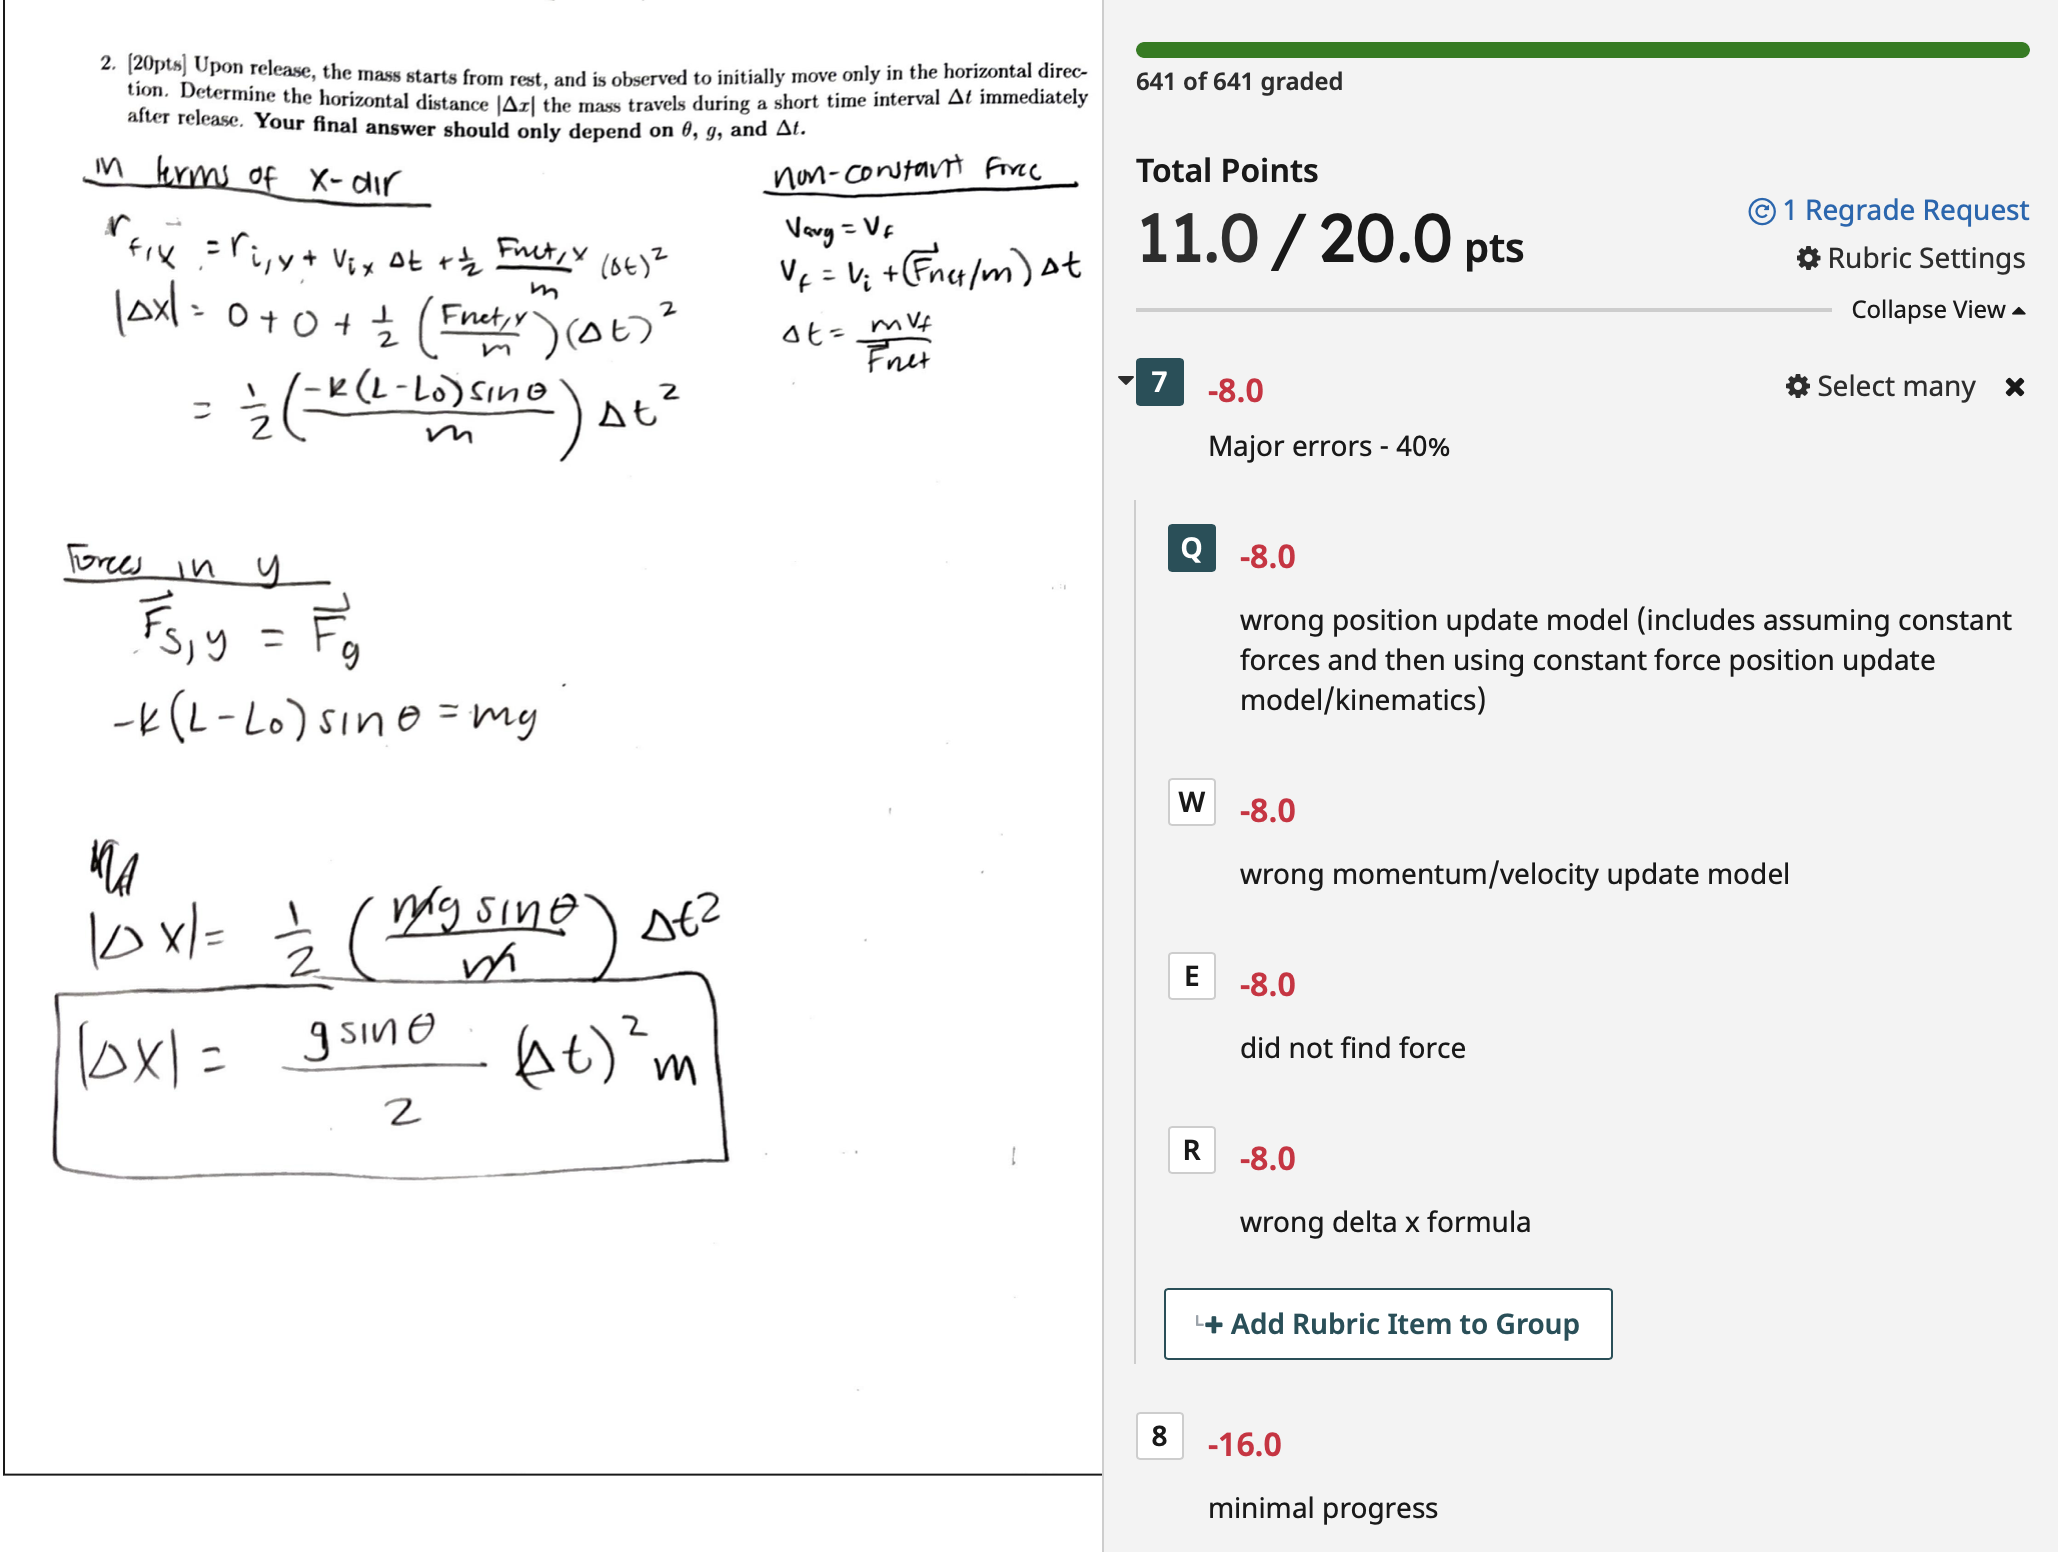 2. [20pts] Upon release, the mass starts from rest, and is observed to initially move only in the horizontal direc-
tion. Determine the horizontal distance |Δx| the mass travels during a short time interval Δt immediately
after release. Your final answer should only depend on θ, g, and Δt.
in terms of x-dir
r f,x = r i,y + v ix Δt + 1/2 Fnet,x/m (Δt)²
|Δx| = 0 + 0 + 1/2 (Fnet,x/m)(Δt)²
= 1/2 (-k(L-Lo)sinθ/m) Δt²
non-constant Force
Vavg = Vf
Vf = Vi + (F⃗net/m) Δt
Δt = mVf/F⃗net
Forces in y
F⃗s,y = F⃗g
-k(L-Lo)sinθ = mg
|Δx| = 1/2 (mg sinθ/m) Δt²
|Δx| = g sinθ/2 (Δt)² m
641 of 641 graded
Total Points
11.0 / 20.0 pts
1 Regrade Request
Rubric Settings
Collapse View
7 -8.0
Select many
Major errors - 40%
Q -8.0
wrong position update model (includes assuming constant
forces and then using constant force position update
model/kinematics)
W -8.0
wrong momentum/velocity update model
E -8.0
did not find force
R -8.0
wrong delta x formula
+ Add Rubric Item to Group
8 -16.0
minimal progress